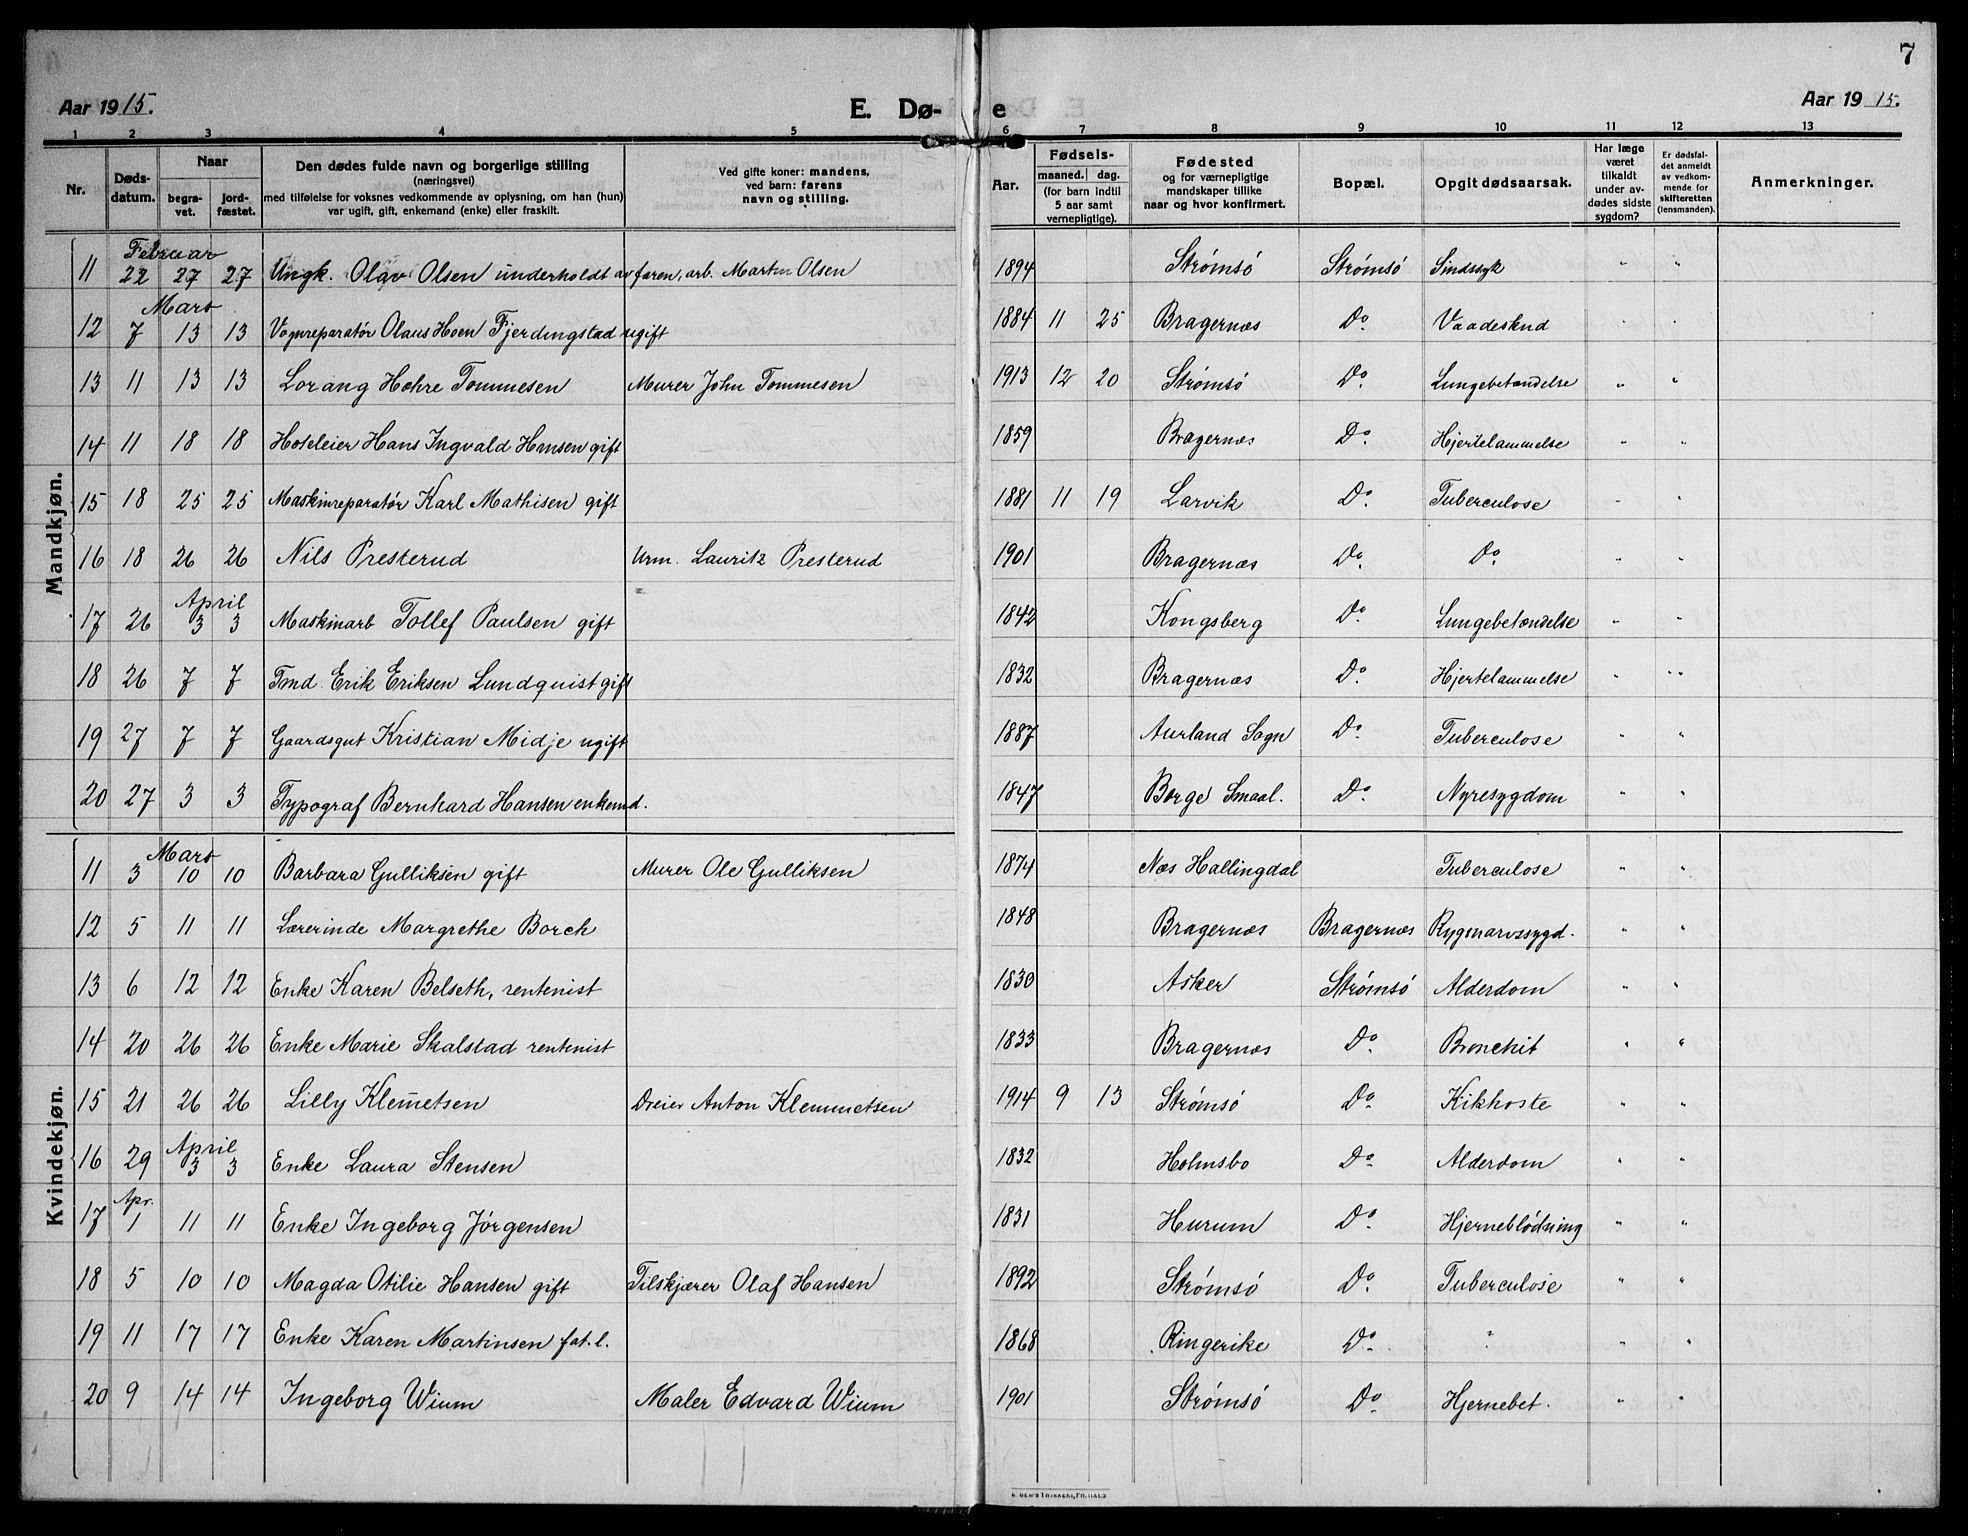 7
Aar 1915. E. Dø- e Aar 1915.
1 2 3 4 5 6 7 8 9 10 11 12 13
Nr. Døds-datum. Naar begra-vet. jord-fæstet. Den dødes fulde navn og borgerlige stilling (næringsvei) med tilføielse for voksnes vedkommende av oplysning, om han (hun) var ugift, gift, enkemand (enke) eller fraskilt. Ved gifte koner: mandens, ved barn: farens navn og stilling. Aar. Fødsels- maaned. dag. (for barn indtil 5 aar samt vernepligtige). Fødested og for værnepligtige mandskaper tillike naar og hvor konfirmert. Bopæl. Opgit dødsaarsak. Har læge været tilkaldt under av-dødes sidste sygdom? Er dødsfal-det anmeldt av vedkom-mende for skifteretten (lensmanden). Anmerkninger.
Mandkjøn.
Februar
11 22 27 27 Ungk. Olav Olsen underholdt av faren, arb. Martin Olsen 1894 Strømsø Strømsø Sindssyk " "
Mars
12 7 13 13 Vognreparatør Olaus Hoen Fjerdingstad ugift 1884 11 25 Bragernæs Do. Vaadeskud " "
13 11 13 13 Lorang Hohre Tommesen Murer John Tommesen 1913 12 20 Strømsø Do. Lungebetændelse " "
14 11 18 18 Hoteleier Hans Ingvald Hansen gift 1859 Bragernæs Do. Hjertelammelse " "
15 18 25 25 Maskinreparatør Karl Mathisen gift 1881 11 19 Larvik Do. Tuberculose " "
16 18 26 26 Nils Presterud Urm. Lauritz Presterud 1901 Bragernæs Do. Do. " "
April
17 26 3 3 Maskinarb Tollef Paulsen gift 1842 Kongsberg Do. Lungebetændelse " "
18 26 7 7 Tmd. Erik Eriksen Lundquist gift 1832 Bragernæs Do. Hjertelammelse " "
19 27 7 7 Gaardsgut Kristian Midje ugift 1887 Aurland Sogn Do. Tuberculose " "
20 27 3 3 Typograf Bernhard Hansen enkemd. 1847 Borge Smaal. Do. Nyresygdom " "
Kvindekjøn.
Mars
11 3 10 10 Barbara Gulliksen gift Murer Ole Gulliksen 1874 Næs Hallingdal Tuberculose " "
12 5 11 11 Lærerinde Margrethe Borch 1848 Bragernæs Bragernæs Rygmarvssygd. " "
13 6 12 12 Enke Karen Belseth, rentenist 1830 Asker Strømsø Alderdom " "
14 20 26 26 Enke Marie Skalstad rentenist 1833 Bragernæs Do. Bronchit " "
15 21 26 26 Lilly Klem̅etsen Dreier Anton Klemmetsen 1914 9 13 Strømsø Do. Kikhoste " "
April
16 29 3 3 Enke Laura Stensen 1832 Holmsbo Do. Alderdom " "
Apr.
17 1 11 11 Enke Ingeborg Jørgensen 1831 Hurum Do. Hjerneblødning " "
18 5 10 10 Magda Otilie Hansen gift Tilskjærer Olaf Hansen 1892 Strømsø Do. Tuberculose " "
19 11 17 17 Enke Karen Martinsen fat. l. 1868 Ringerike Do. " " "
20 9 14 14 Ingeborg Wium Maler Edvard Wium 1901 Strømsø Do. Hjernebet. " "